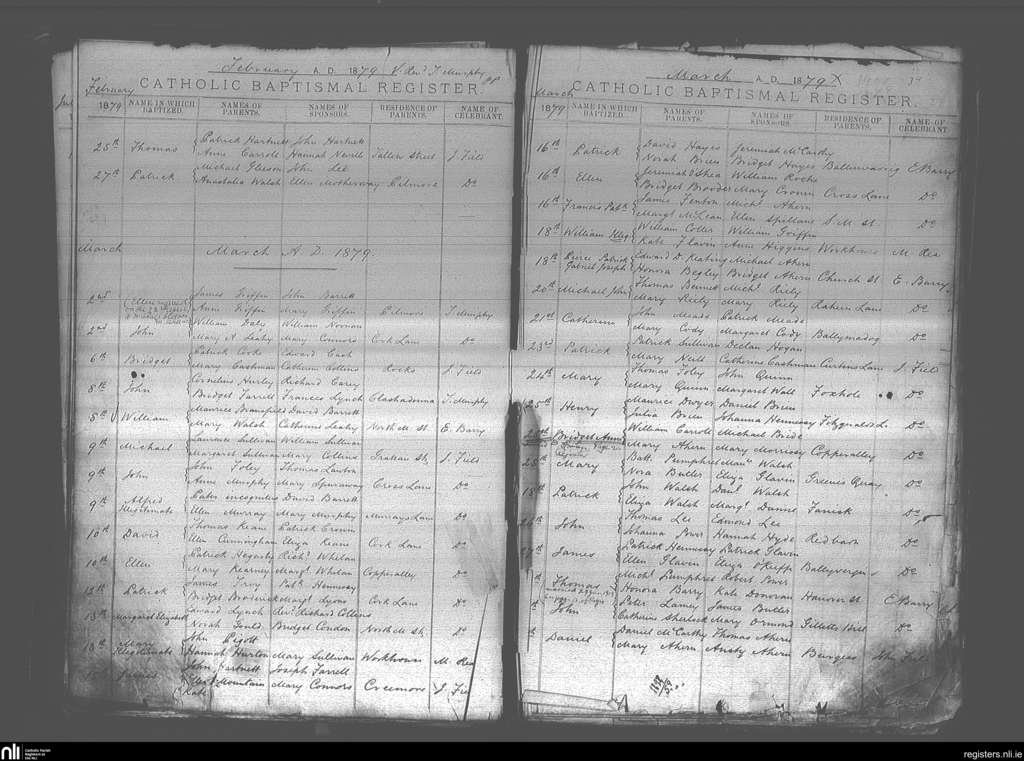 February A.D. 1879 V. Revd T. Murphy PP
CATHOLIC BAPTISMAL REGISTER.
February
1879 NAME IN WHICH BAPTIZED. NAMES OF PARENTS. NAMES OF SPONSORS. RESIDENCE OF PARENTS. NAME OF CELEBRANT.
Patrick Hartnett John Hartnett
25th Thomas Anne Carroll Hannah Nevill Tallow Street J. Field
Michael Gleeson John Lee
27th Patrick Annastatia Walsh Ellen Motherway Kilmore Do
March March A.D. 1879
2nd James Griffin John Barrett
Anne Griffin Mary Griffin Kilmore T. Murphy
William Daly William Noonan
2nd John Mary A Leahy Mary Connors Cork Lane Do
Patrick Cooke Edward Cash
6th Bridget Mary Cashman Catherine Collins Rocks J. Field
Cornelius Hurley Richard Carey
8th John Bridget Farrell Frances Lynch Clashadonna T. Murphy
Maurice Bransfield David Barrett
8th William Mary Walsh Catherine Leahy North M. St. E. Barry
Laurence Sullivan William Sullivan
9th Michael Margaret Sullivan Mary Collins Grattan St. J. Field
John Foley Thomas Lawton
9th John Anne Murphy Mary Spuraway Cross Lane Do
Pater incognitus David Barrett
9th Alfred Illegitimate Ellen Murray Mary Murphy Murrays Lane Do
Thomas Keane Patrick Cronin
10th David Ellen Cunningham Eliza Keane Cork Lane Do
Patrick Hegarty Richd Whelan
10th Ellen Mary Kearney Margt Whelan Copperalley Do
James Troy Patk Hennessy
12th Patrick Bridget Broderick Margt Lyons Cork Lane Do
Edward Lynch Revd Richard Collins
13th Margaret Elizabeth Norah Gould Bridget Condon North M St. Do
John Pigott
13th Mary Illegitimate Hannah Hurton Mary Sullivan Workhouse M. Rea
John Hartnett Joseph Farrell
James Kate Mountain Mary Connors Creemore J. Fie
March A.D. 1879
CATHOLIC BAPTISMAL REGISTER.
March
1879 NAME IN WHICH BAPTIZED. NAMES OF PARENTS. NAMES OF SPONSORS. RESIDENCE OF PARENTS. NAME OF CELEBRANT.
David Hayes Jeremiah McCarthy
16th Patrick Norah Brien Bridget Hayes Ballinvarrig E Barry
Jeremiah O'Shea William Roche
16th Ellen Bridget Brooder Mary Cronin Cross Lane Do
James Fenton Michl Ahern
16th Francis Patk Margt McLean Ellen Spillane S. M St. Do
William Coller William Griffin
18th William Illegt Kate Flavin Anne Higgins Workhouse M. Rea
Edward D. Keating Michael Ahern
18th Pierce Patrick Gabriel Joseph Honora Begley Bridget Ahern Church St E. Barry
Thomas Bennett Michl Riely
20th Michael John Mary Riely Mary Riely Raheen Lane Do
John Meade Patrick Meade
21st Catherine Mary Cody Margaret Cody Ballymadog Do
Patrick Sullivan Declan Hogan
23rd Patrick Mary Neill Catherine Cashman Curtens Lane J. Field
Thomas Foley John Quinn
24th Mary Mary Quinn Margaret Wall Foxhole Do
Maurice Dwyer Daniel Brien
25th Henry Julia Brien Johanna Hennessy Fitzgeralds L. Do
William Carroll Michael Bride
Bridget Anne Mary Ahern Mary Morrissy Copperalley Do
Batt. Pumphret Maur Walsh
25th Mary Nora Butler Eliza Glavin Greenes Quay Do
John Walsh Danl Walsh
18th Patrick Eliza Walsh Margt Dunne Do
Thomas Lee Edmond Lee
26th John Johanna Power Hannah Hyde Redbarn Do
Patrick Hennessy Patrick Glavin
27th James Ellen Glaven Eliza O'Keeffe Ballyvergin Do
Michl Pumphret Robert Power
Thomas Honora Barry Kate Donovan Hanover St. E Barry
Peter Lamey James Butler
John Catherine Sherlock Mary Ormond Gilletts Hill Do
Daniel McCarthy Thomas Ahern
Daniel Mary Ahern Ansty Ahern Burgess John Field
nli Catholic Parish Registers at the NLI
registers.nli.ie